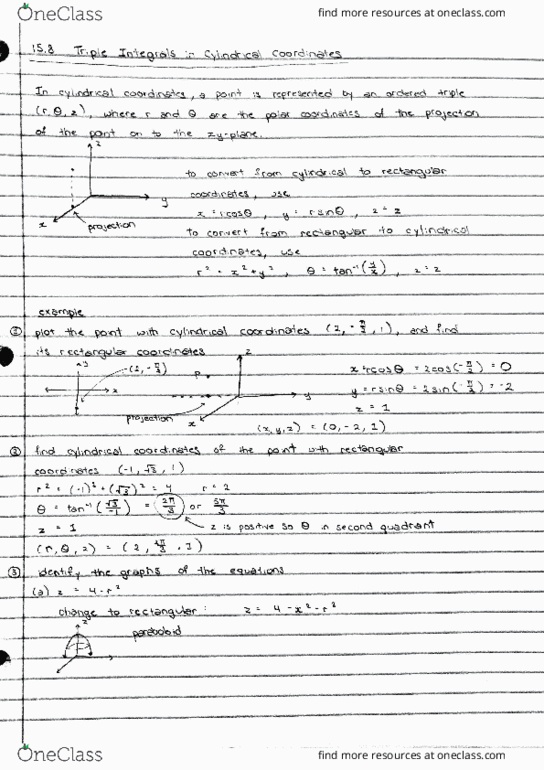 OneClass
find more resources at oneclass.com
15.8 Triple Integrals in Cylindrical Coordinates
In cylindrical coordinates, a point is represented by an ordered triple
(r, θ, z), where r and θ are the polar coordinates of the projection
of the point on to the xy-plane.
z
to convert from cylindrical to rectangular
coordinates, use
y
x = rcosθ, y = rsinθ, z = z
x
projection
to convert from rectangular to cylindrical
coordinates, use
r² = x² + y², θ = tan⁻¹(y/x), z = z
example
① plot the point with cylindrical coordinates (2, -π/2, 1), and find
its rectangular coordinates
y
(2, -π/2)
z
x = rcosθ = 2cos(-π/2) = 0
x
P
y
y = rsinθ = 2sin(-π/2) = -2
z = 1
projection
x
(x,y,z) = (0, -2, 1)
② find cylindrical coordinates of the point with rectangular
coordinates (-1, √3, 1)
r² = (-1)² + (√3)² = 4 r = 2
θ = tan⁻¹(√3/-1) = 2π/3 or 5π/3
z = 1
z is positive so θ in second quadrant
(r, θ, z) = (2, 2π/3, 1)
③ identify the graphs of the equations
(a) z = 4 - r²
change to rectangular: z = 4 - x² - r²
z
paraboloid
OneClass
find more resources at oneclass.com